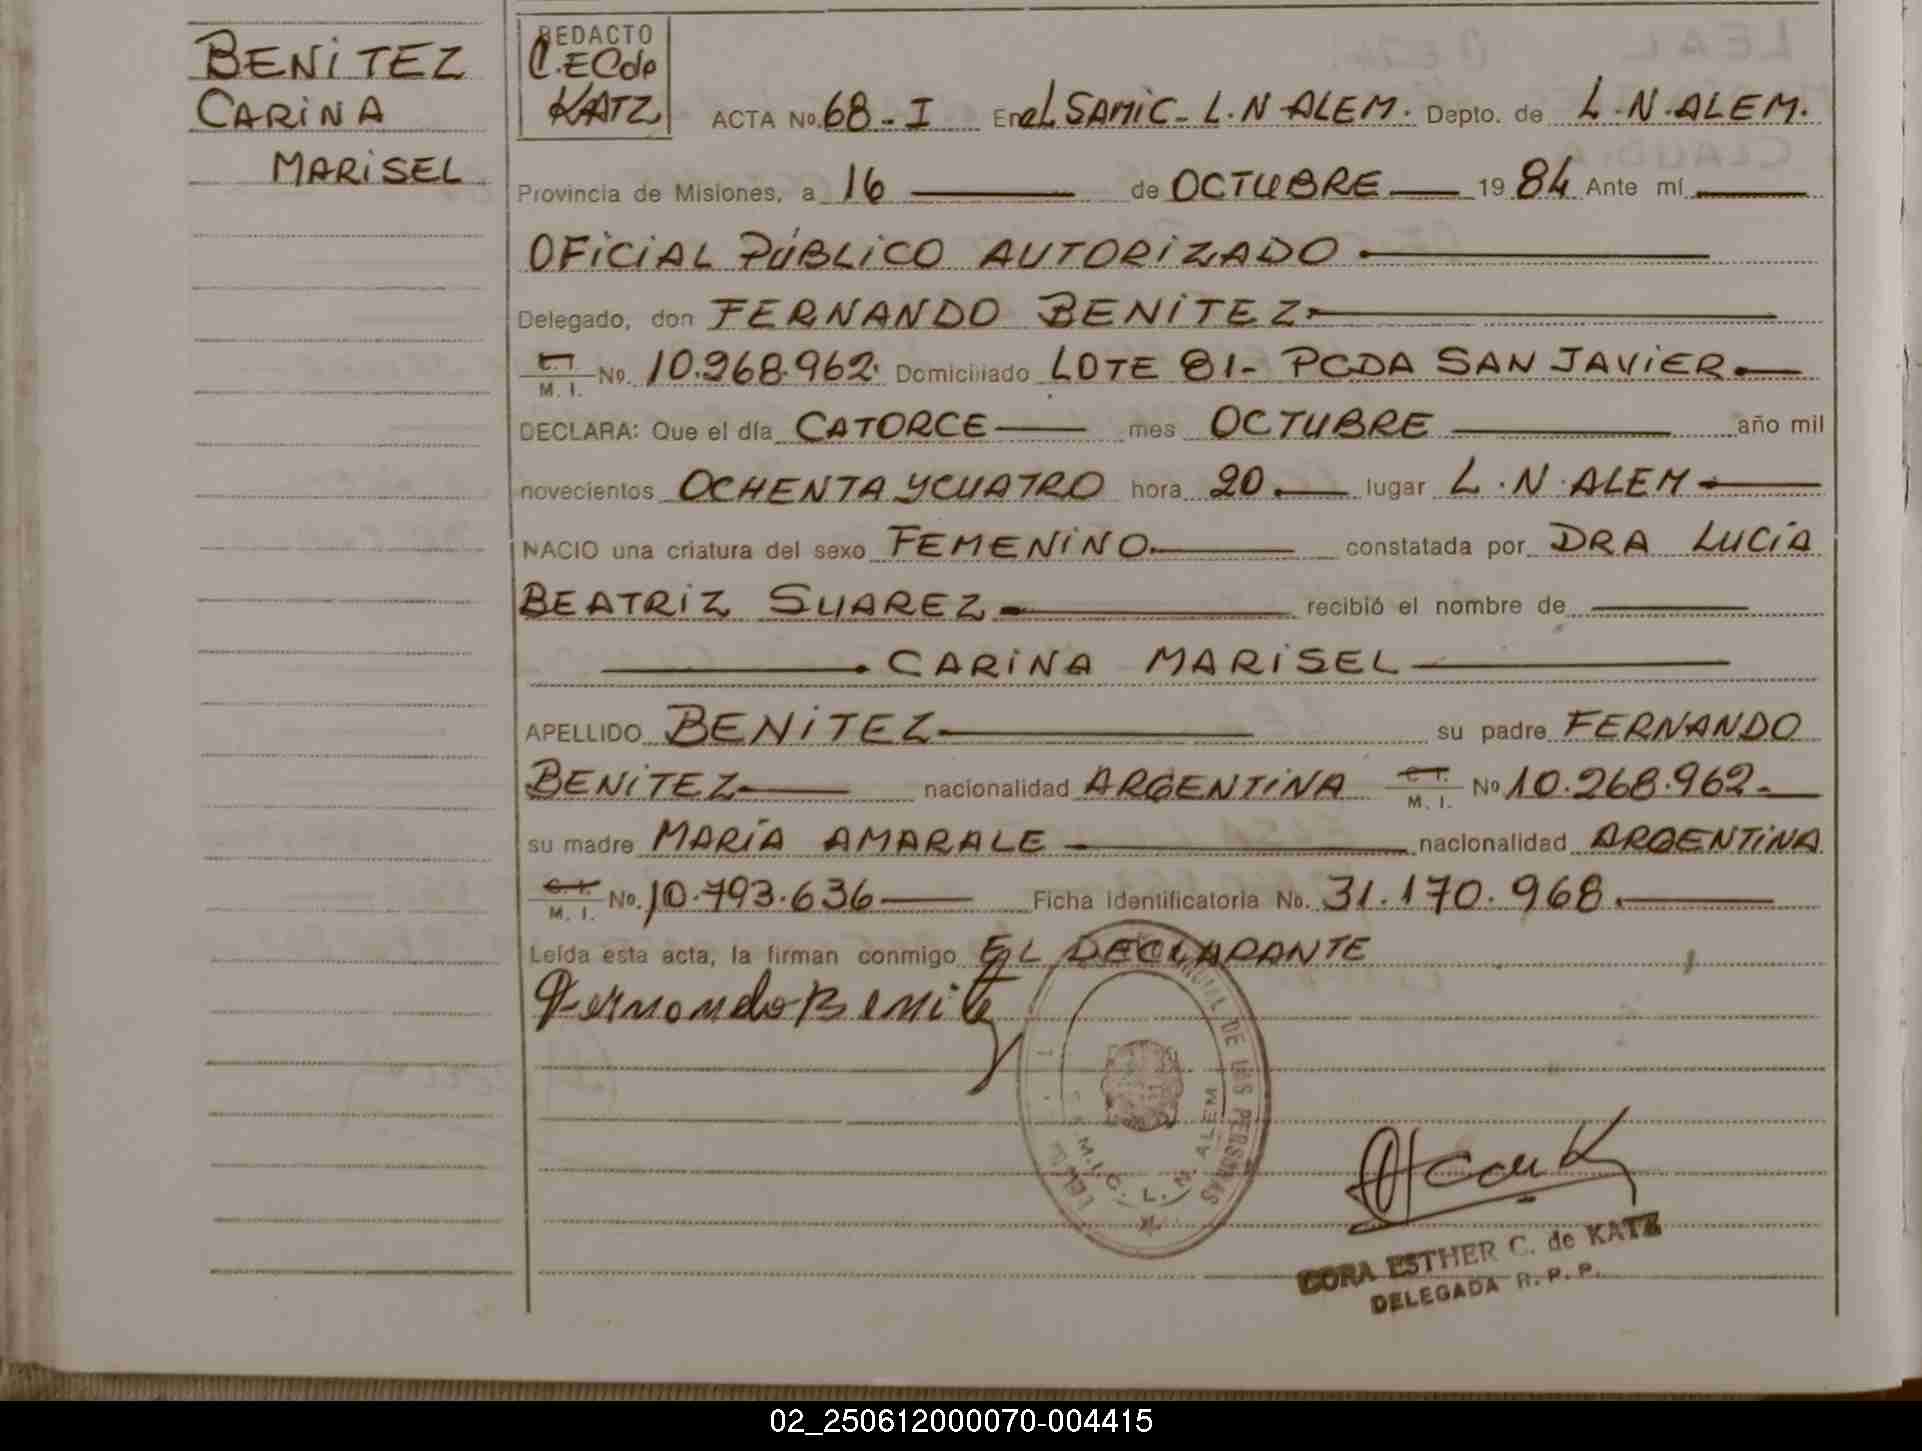 BENITEZ
CARINA
MARISEL
REDACTO
C.EC de
KATZ
ACTA No. 68-I En el SAMIC-L.N ALEM. Depto. de L.N.ALEM.
Provincia de Misiones, a 16 de OCTUBRE 1984 Ante mí
OFICIAL PÚBLICO AUTORIZADO
Delegado, don FERNANDO BENITEZ
C.I. M. I. No. 10.268.962. Domiciliado LOTE 81- PCDA SAN JAVIER
DECLARA: Que el día CATORCE mes OCTUBRE año mil
novecientos OCHENTA Y CUATRO hora 20. lugar L.N.ALEM
NACIO una criatura del sexo FEMENINO constatada por DRA LUCÍA
BEATRIZ SUAREZ recibió el nombre de
CARINA MARISEL
APELLIDO BENITEZ su padre FERNANDO
BENITEZ nacionalidad ARGENTINA C.I. M. I. No 10.268.962-
su madre MARÍA AMARALE nacionalidad ARGENTINA
C.I. M. I. No. 10.793.636 Ficha Identificatoria No. 31.170.968.
Leída esta acta, la firman conmigo EL DECLARANTE
Fernando Benitez
DE LAS PERSONAS
L. N. ALEM
CORA ESTHER C. de KATZ
DELEGADA R. P. P.
02_250612000070-004415